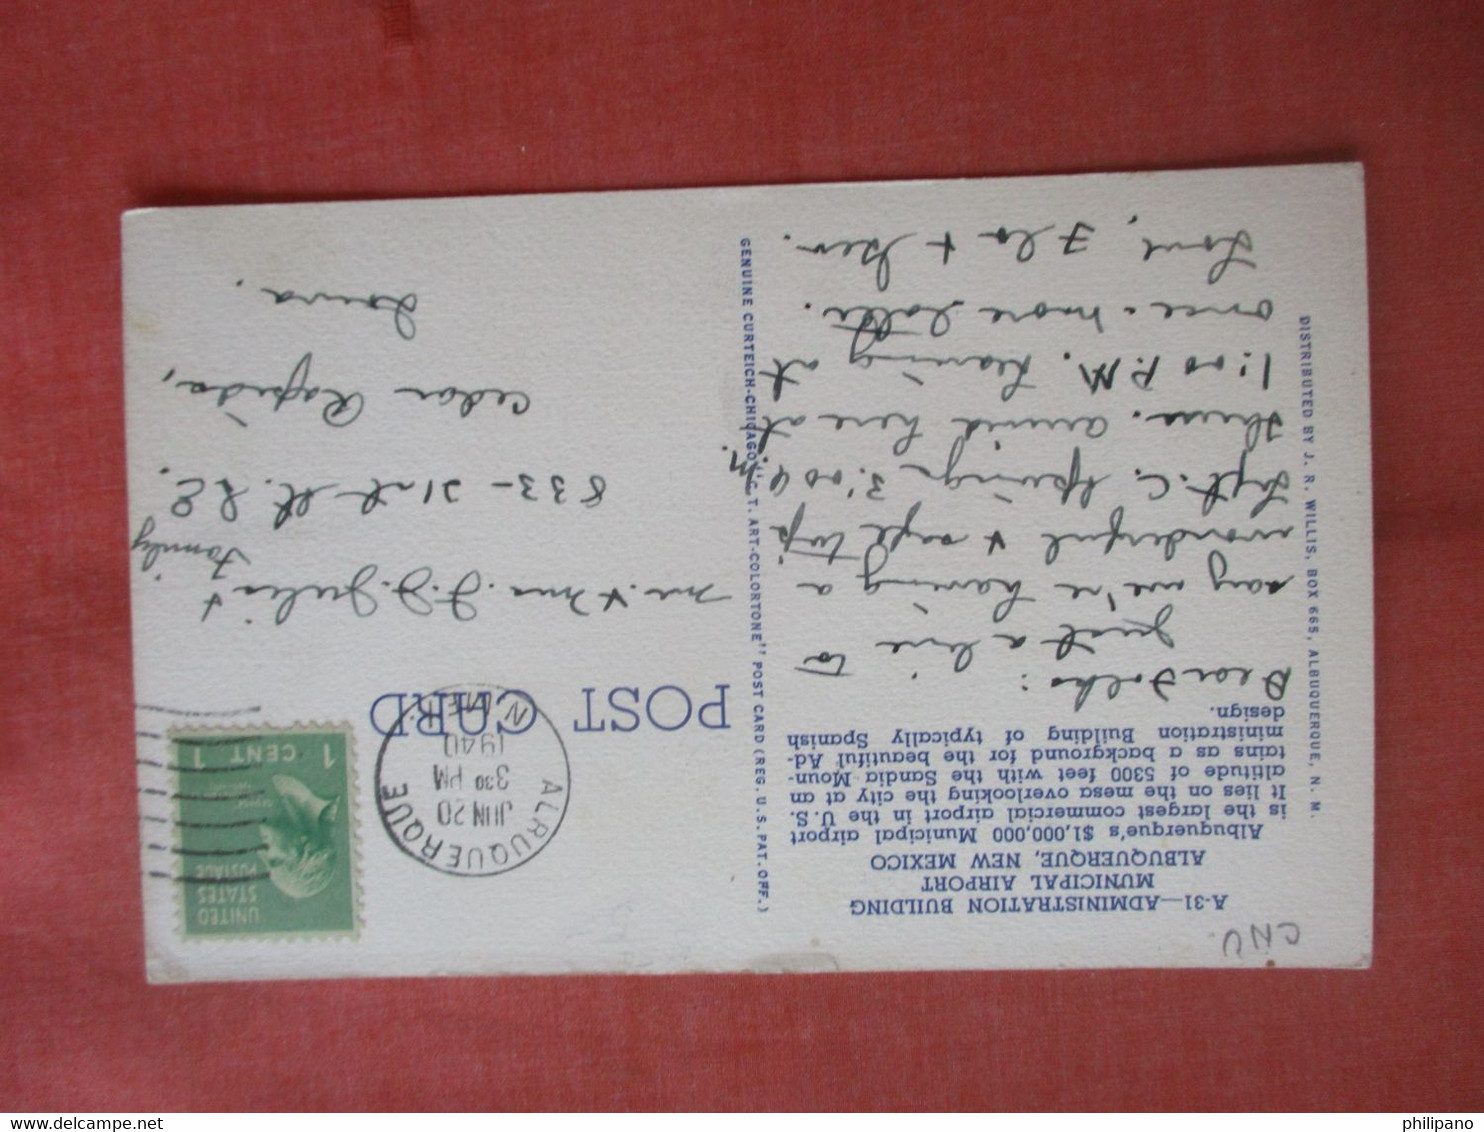 CNV.
A-31—ADMINISTRATION BUILDING
MUNICIPAL AIRPORT
ALBUQUERQUE, NEW MEXICO
Albuquerque's $1,000,000 Municipal airport
is the largest commercial airport in the U. S.
It lies on the mesa overlooking the city at an
altitude of 5300 feet with the Sandia Moun-
tains as a background for the beautiful Ad-
ministration Building of typically Spanish
design.
Dear Folks:
Just a line to
say we're having a
wonderful + safe trip
Left C. Springs 3:00 a.m.
Thurs. arrived here at
1:00 P.M. leaving at
once - more later.
Love, Flo + Bev.
DISTRIBUTED BY J. R. WILLIS, BOX 665, ALBUQUERQUE, N. M.
GENUINE CURTEICH-CHICAGO "C. T. ART-COLORTONE" POST CARD (REG. U. S. PAT. OFF.)
POST CARD
ALBUQUERQUE
JUN 20
3 30 PM
1940
N. MEX.
UNITED
STATES
POSTAGE
1 CENT 1
Mr. + Mrs. J. J.  +
Family
833 - 21st St. S.E.
Cedar Rapids,
Iowa.
philipano